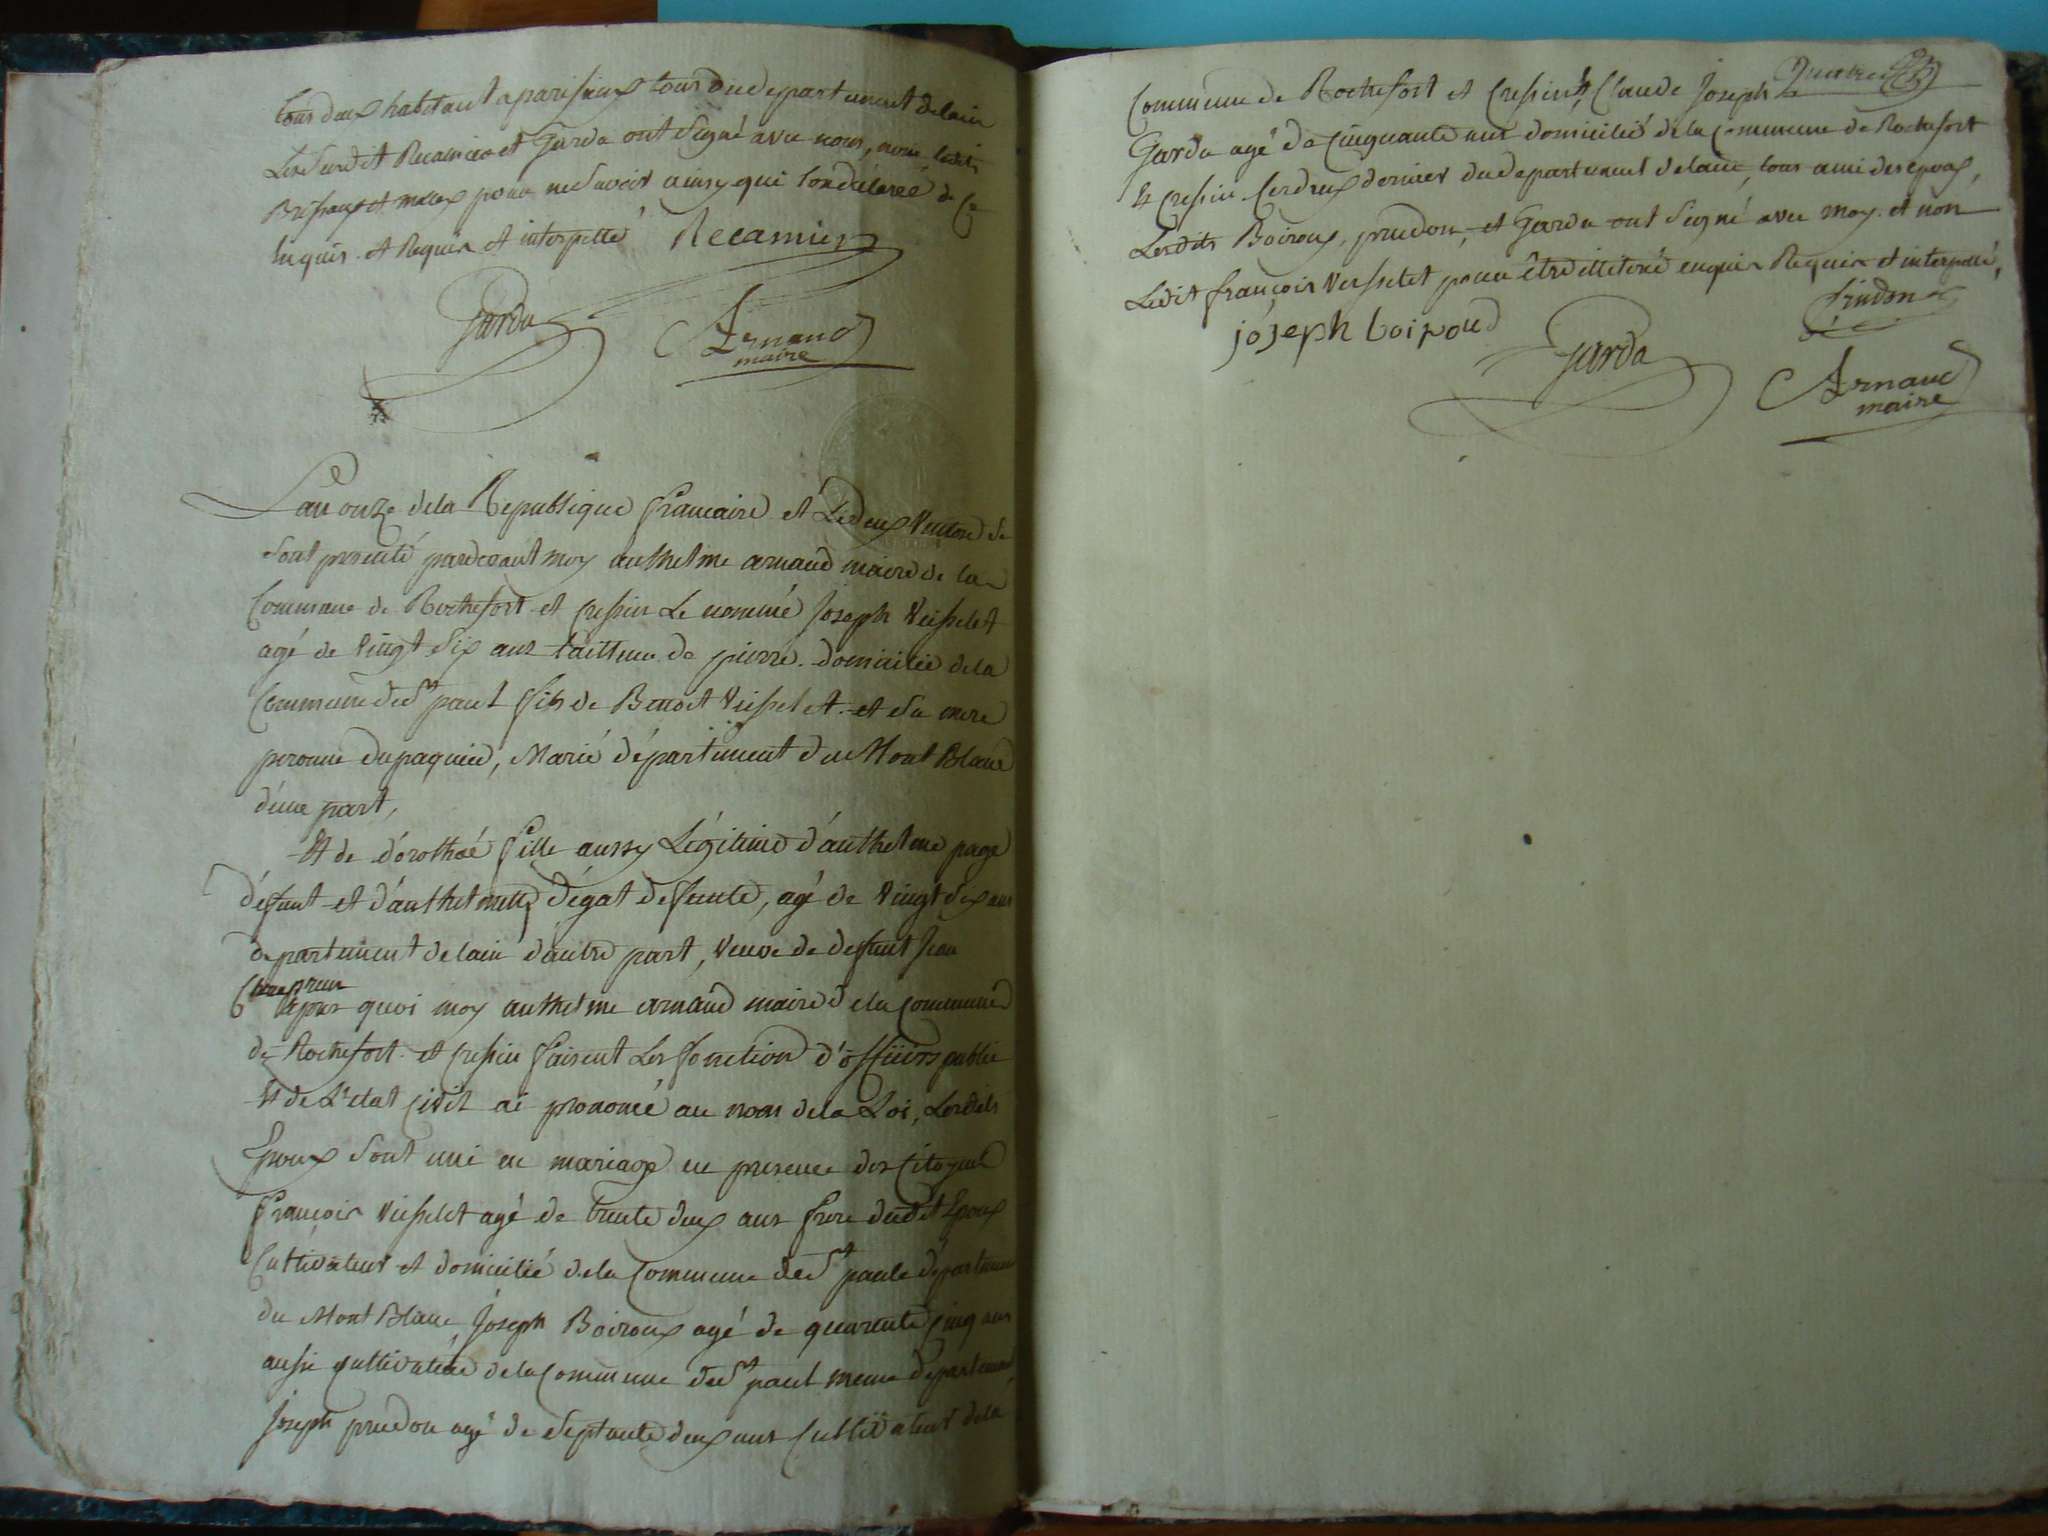 tous deux habitant a parisieux tous du departement delain
Lesdudit Recamier et Garda ont signé avec nous, non ledit
Brissaux et molex pour ne savoir ainsy qui lon déclaree de ce
enquis et Requis et interpellé Recamier
Garda
Arnaud
maire
Lan onze dela Republique francaise et Le deux Ventose se
sont presenté pardevant moy anthelme arnaud maire de la
Commune de Rochefort et Cressin Le nommé Joseph Veisselet
agé de vingt six ans tailleur de pierre domicilié dela
Commune de St paul fils de Benoit Veisselet et sa mere
peronne dupaquier, Marié département du Mont Blanc
d'une part,
Et de dorothée fille aussy Légitime d'anthelme page
défunt et d'anthelmette dégat defunte, agé de Vingt six ans
departement delain dautre part, veuve de defunt Jean
Apres quoi moy anthelme arnaud maire dela Commune
de Rochefort et Cressin faisent Les fonction d'officiers public
Et de L'etat Civil ai prononcé au nom dela Loi, Lesdits
Epoux sont uni en mariage en presence des Citoyens
François Veisselet agé de trente deux ans frere dudit Epoux
Cultivateur et domicilié dela Commune de St paul departement
du Mont Blanc Joseph Boiroux agé de quarente cinq ans
aussi cultivateur dela Commune de St paul meme departement
Joseph prudon agé de septante deux ans Cultivateur dela
Commune de Rochefort et Cressin Et Claude Joseph
Garda agé de Cinquante ans domicilié dela Commune de Rochefort
Et Cressin Ces deux dernier du departement delain, tous ami des epoux,
Lesdits Boiroux, prudon, et Garda ont signé avec moy et non
Ledit françois Veisselet pour être illiteré enquis Requis et interpellé,
joseph boiroud
Prudon
Garda
Arnaud
maire